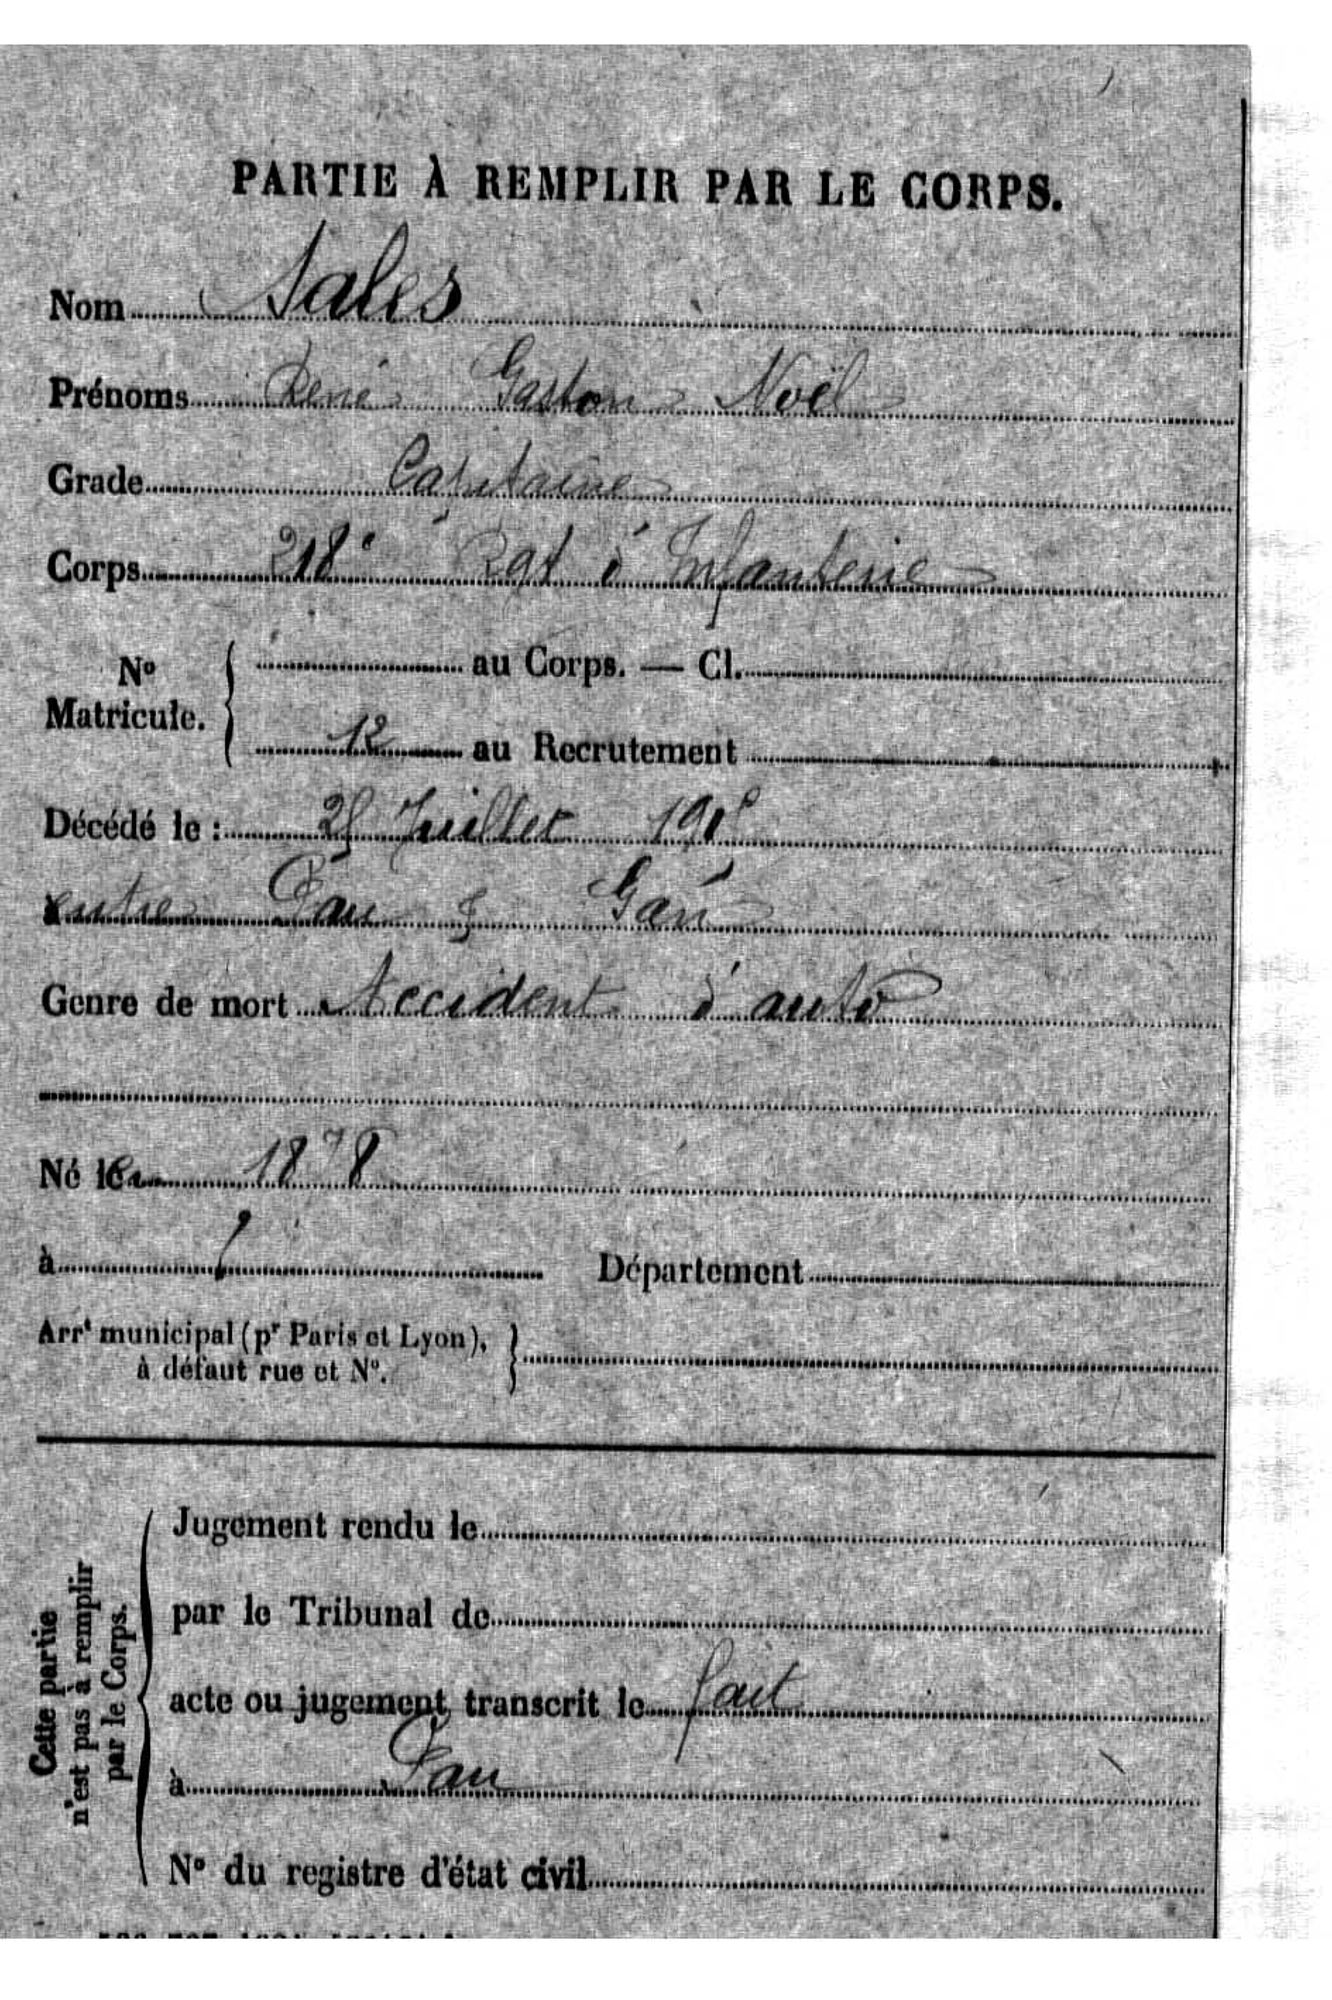 PARTIE À REMPLIR PAR LE CORPS.
Nom Sales
Prénoms René Gaston Noël
Grade Capitaine
Corps 218e Rgt d'Infanterie
No Matricule. { au Corps. — Cl.
12 au Recrutement
Décédé le : Juillet
entre Pau & Gan
Genre de mort Accident d'auto
Né en 1878
à Département
Arrt municipal (pr Paris et Lyon), à défaut rue et No. }
Cette partie n'est pas à remplir par le Corps.
Jugement rendu le
par le Tribunal de
acte ou jugement transcrit le fait
à Pau
No du registre d'état civil